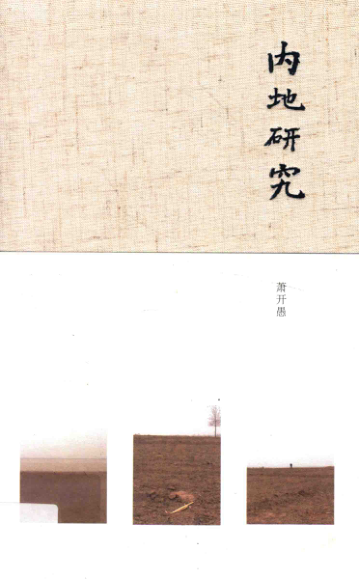 内地研究
萧开愚